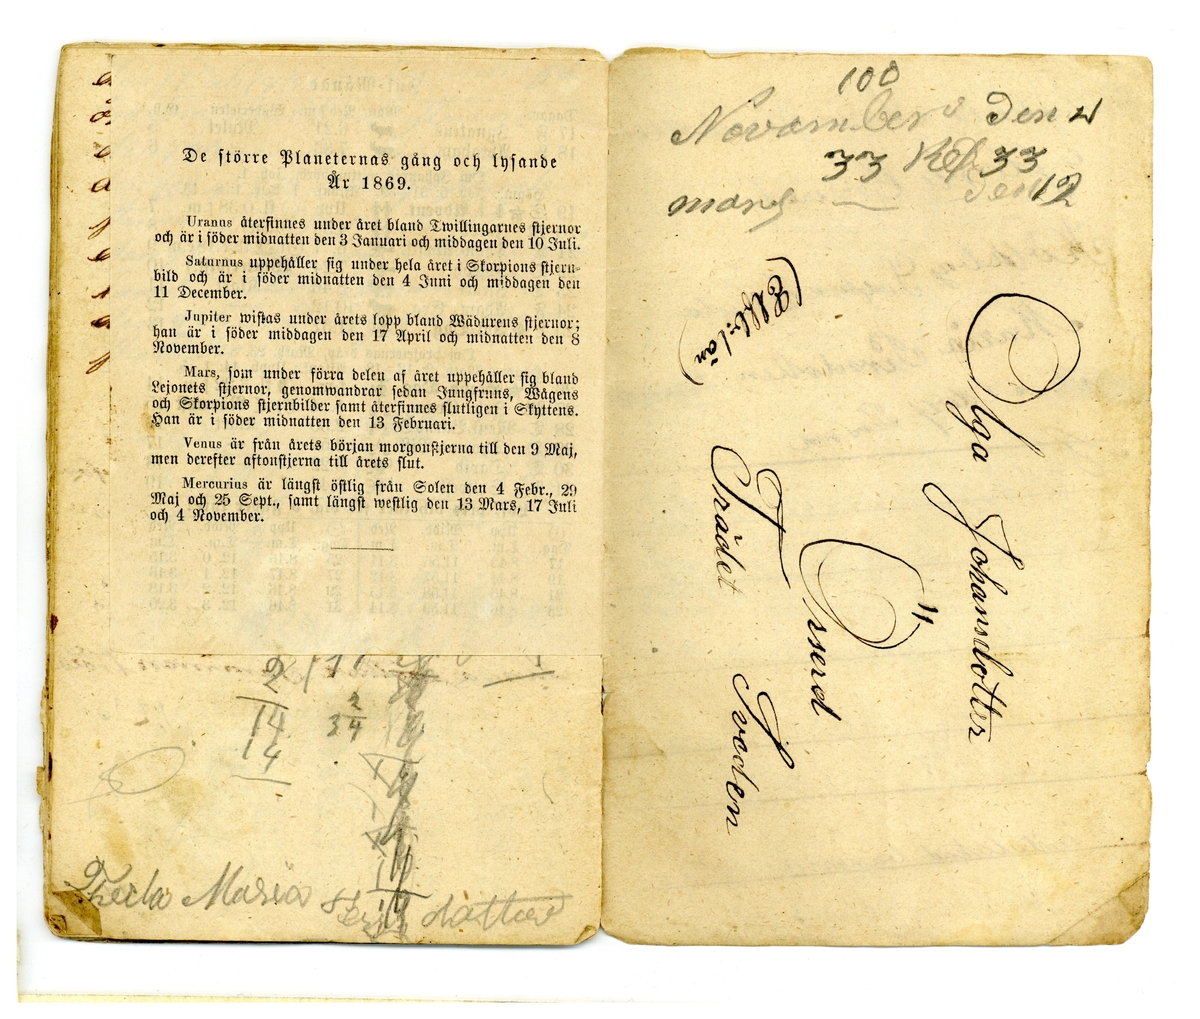 De större Planeternas gång och lysande
År 1869.
Uranus återfinnes under året bland Twillingarnes stjernor
och är i söder midnatten den 3 Januari och middagen den 10 Juli.
Saturnus uppehåller sig under hela året i Skorpions stjern-
bild och är i söder midnatten den 4 Juni och middagen den
11 December.
Jupiter wistas under årets lopp bland Wädurens stjernor;
han är i söder middagen den 17 April och midnatten den 8
November.
Mars, som under förra delen af året uppehåller sig bland
Lejonets stjernor, genomwandrar sedan Jungfruns, Wågens
och Skorpions stjernbilder samt återfinnes slutligen i Skyttens.
Han är i söder midnatten den 13 Februari.
Venus är från årets början morgonstjerna till den 9 Maj,
men derefter aftonstjerna till årets slut.
Mercurius är längst östlig från Solen den 4 Febr., 29
Maj och 25 Sept., samt längst westlig den 13 Mars, 17 Juli
och 4 November.
2
14
14
2
34
Thecla Maria dotter
100
November den
33 33
mars den 12
Olga Johansdotter
Örserd
Trädet Sveden
(Elfsb:län)